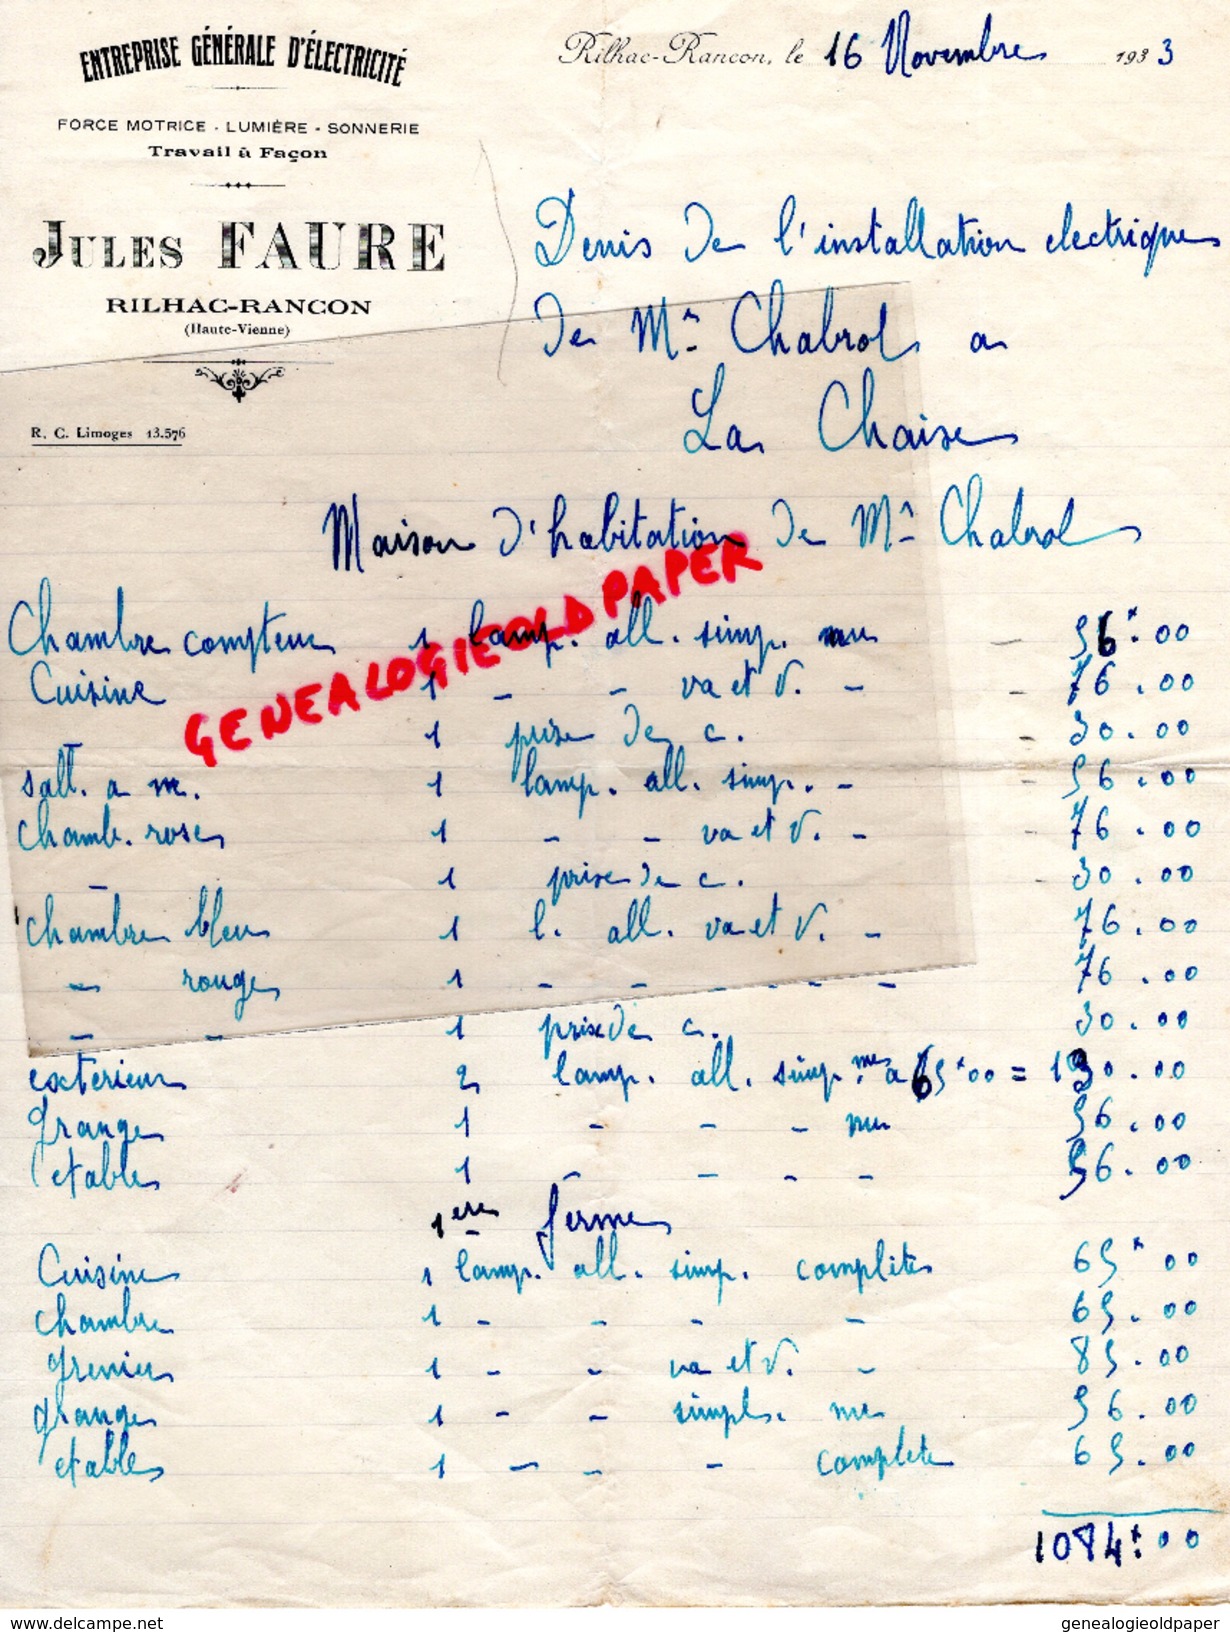 ENTREPRISE GÉNÉRALE D'ÉLECTRICITÉ
FORCE MOTRICE - LUMIÈRE - SONNERIE
Travail à Façon
JULES FAURE
RILHAC-RANCON
(Haute-Vienne)
R. C. Limoges 13.576
Rilhac-Rancon, le 16 Novembre 1933
Devis de l'installation electrique
de Mr Chabrol a
La Chaise
Maison d'habitation de Mr Chabrol
GENEALOGIEOLDPAPER
Chambre compteur 1 lamp. all. simp. nue - 56f.00
Cuisine 1 - - va et v. - - 76.00
1 prise de c. - 30.00
sall. a m. 1 lamp. all. simp. - - 56.00
chamb. rose 1 - - va et v. - - 76.00
- 1 prise de c. - 30.00
chambre bleu 1 l. all. va et v. - 76.00
- rouge 1 - - - - - - 76.00
- - 1 prise de c. 30.00
exterieur 2 lamp. all. simp. nue a 65f00 = 130.00
grange 1 - - - nue 56.00
etable 1 - - - - 56.00
1ere ferme
Cuisine 1 lamp. all. simp. complète 65f00
chambre 1 - - - - 65.00
grenier 1 - - va et v. - 85.00
grange 1 - - simple. nue 56.00
etable 1 - - - complete 65.00
1084f.00
www.delcampe.net
genealogieoldpaper